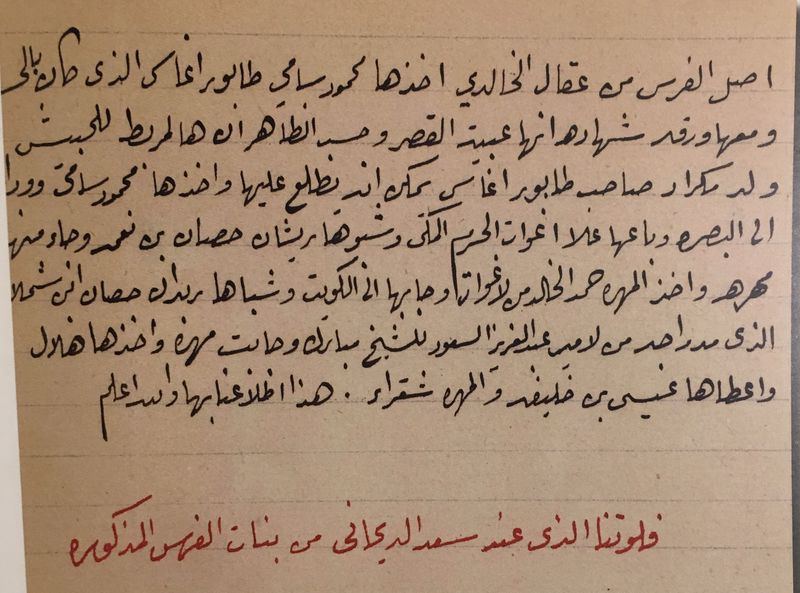 اصل الفرس من عقال الخالدي اخذها محمود سامي طابور اغاسي الذي كان بالحسا
ومعها ورقة شهاده انها عبية القصر وحسب الظاهر ان هالمربط للجيش
ولد صاحب طابور اغاسي يمكن انه يطلع عليها واخذها محمود سامي
الى البصره وباعها على اغوات الحرم المكي وشبوها بريشان حصان بن نقمه وجاء منها
مهره واخذ المهره حمد الخالد من لاغوات وجابها الى الكويت وشباها بربدان حصان ابن شملان
الذى من لامير عبدالعزيز السعود للشيخ مبارك وجابت مهره واخذها هلال
واعطاها عيسى بن خليفه والمهره شقراء . هذا اطلاعنا بها والله اعلم
فلوتنا الذى عند سعد الديحاني من بنات الفرس المذكوره